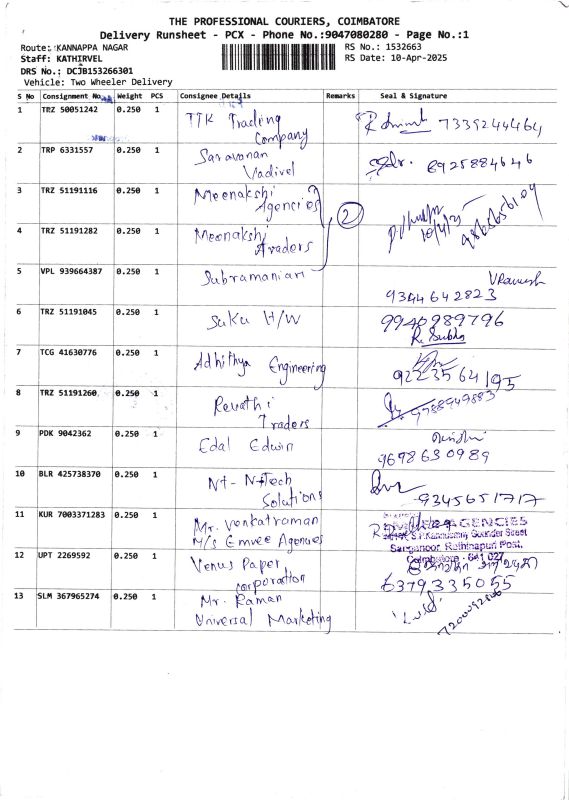 THE PROFESSIONAL COURIERS, COIMBATORE
Delivery Runsheet - PCX - Phone No.:9047080280 - Page No.:1
Route: KANNAPPA NAGAR
RS No.: 1532663
Staff: KATHIRVEL
RS Date: 10-Apr-2025
DRS No.: DCJB153266301
Vehicle: Two Wheeler Delivery
S No Consignment No. Weight PCS Consignee Details Remarks Seal & Signature
1 TRZ 50051242 0.250 1 TTK Trading 7339244464
Company
2 TRP 6331557 0.250 1 Saravanan 8925884646
Vadivel
3 TRZ 51191116 0.250 1 Meenakshi
Agencies
2
10/4/25
4 TRZ 51191282 0.250 1 Meenakshi
Traders
5 VPL 939664387 0.250 1 Subramanian
9344642823
6 TRZ 51191045 0.250 1 Suku H/W 9940989796
R. Subha
7 TCG 41630776 0.250 1 Adhithya Engineering
9223564195
8 TRZ 51191260 0.250 1 Revathi 9788949883
Traders
9 PDK 9042362 0.250 1 Edal Edwin
9698630989
10 BLR 425738370 0.250 1 NT- NTech
Solutions 9345651717
11 KUR 7003371283 0.250 1 Mr. Venkatraman AGENCIES
M/s Emvee Agencies Gounder Street
Sanganoor, Rathinapuri Post,
Coimbatore - 641 027
12 UPT 2269592 0.250 1 Venus Paper
corporation 6379335055
13 SLM 367965274 0.250 1 Mr. Raman
Universal Marketing